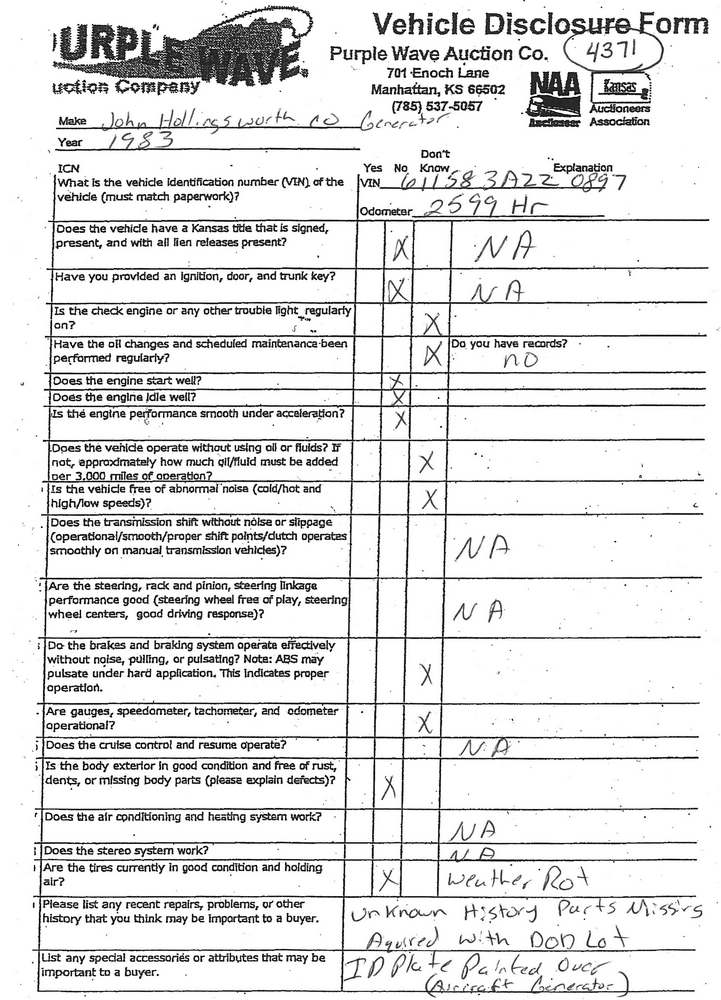 Vehicle Disclosure Form
PURPLE WAVE
uction Company
Purple Wave Auction Co.
4371
701 Enoch Lane
Manhattan, KS 66502
(785) 537-5057
NAA
Auctioneer
Kansas
Auctioneers
Association
Make John Hollingsworth no Generator
Year 1983
Don't
ICN Yes No Know Explanation
What is the vehicle identification number (VIN) of the
vehicle (must match paperwork)?
VIN 611583A22 0897
Odometer 2599 Hr
Does the vehicle have a Kansas title that is signed,
present, and with all lien releases present?
X NA
Have you provided an ignition, door, and trunk key?
X NA
Is the check engine or any other trouble light regularly
on?
X
Have the oil changes and scheduled maintenance been
performed regularly?
X Do you have records?
no
Does the engine start well? X
Does the engine idle well? X
Is the engine performance smooth under acceleration? X
Does the vehicle operate without using oil or fluids? If
not, approximately how much oil/fluid must be added
per 3,000 miles of operation?
X
Is the vehicle free of abnormal noise (cold/hot and
high/low speeds)?
X
Does the transmission shift without noise or slippage
(operational/smooth/proper shift points/clutch operates
smoothly on manual transmission vehicles)?
NA
Are the steering, rack and pinion, steering linkage
performance good (steering wheel free of play, steering
wheel centers, good driving response)?
NA
Do the brakes and braking system operate effectively
without noise, pulling, or pulsating? Note: ABS may
pulsate under hard application. This indicates proper
operation.
X
Are gauges, speedometer, tachometer, and odometer
operational?
X
Does the cruise control and resume operate? NA
Is the body exterior in good condition and free of rust,
dents, or missing body parts (please explain defects)?
X
Does the air conditioning and heating system work?
NA
Does the stereo system work? NA
Are the tires currently in good condition and holding
air?
X Weather Rot
Please list any recent repairs, problems, or other
history that you think may be important to a buyer.
Unknown History Parts Missing
Aquired with DOD Lot
List any special accessories or attributes that may be
important to a buyer.
ID Plate Painted Over
(Aircraft Generator)